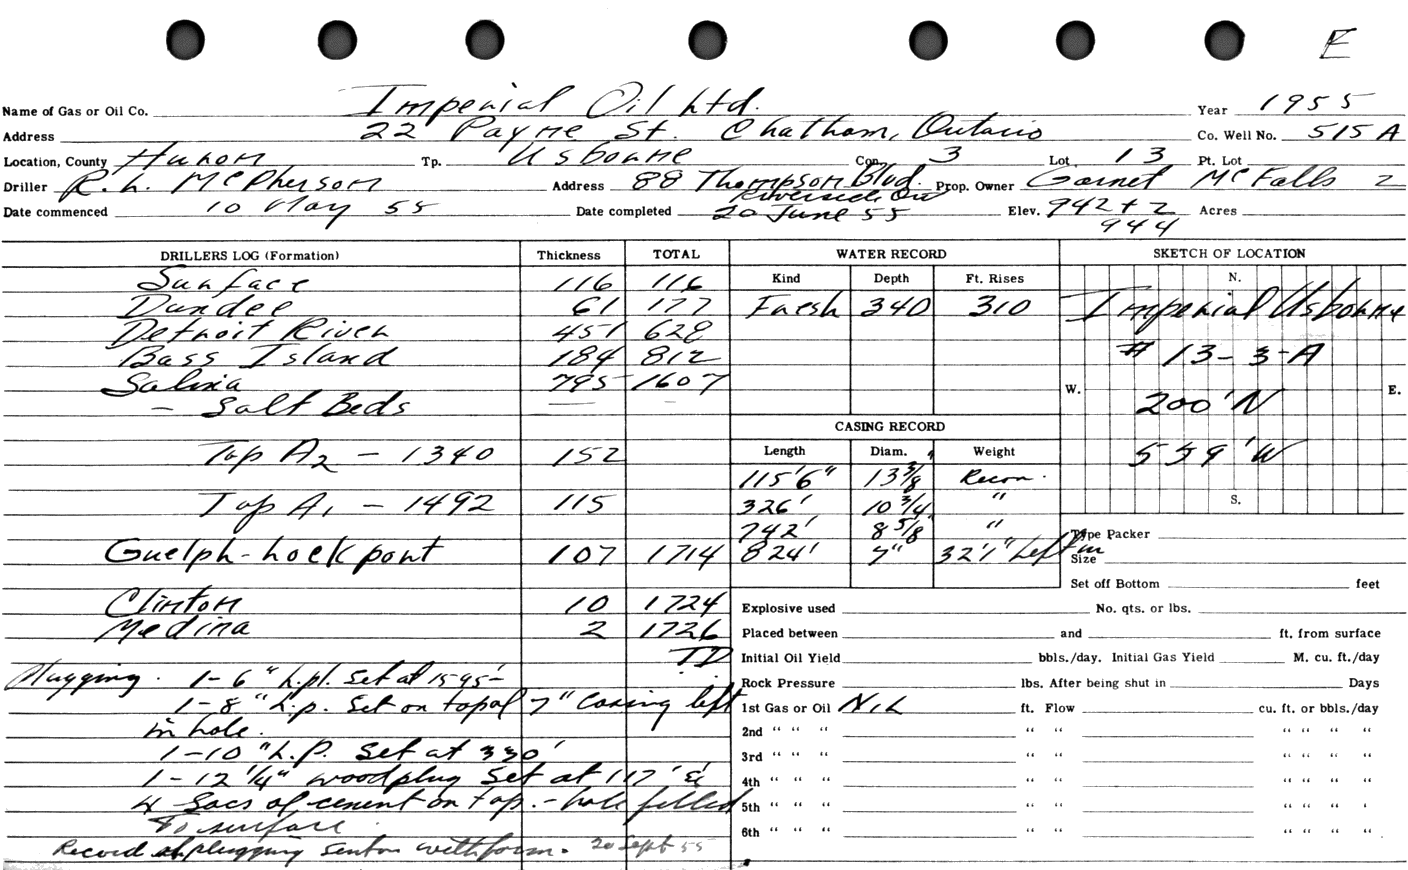 E
Name of Gas or Oil Co. Imperial Oil Ltd. Year 1955
Address 22 Payne St. Chatham, Ontario Co. Well No. 515 A
Location, County Huron Tp. Usborne Con. 3 Lot 13 Pt. Lot
Driller R. L. McPherson Address 88 Thompson Blvd. Riverside Ont Prop. Owner Garnet McFalls 2
Date commenced 10 May 55 Date completed 20 June 55 Elev. 942 + 2 Acres
944
DRILLERS LOG (Formation) Thickness TOTAL
Surface 116 116
Dundee 61 177
Detroit River 451 628
Bass Island 184 812
Salina 795 1607
- Salt Beds
Top A2 - 1340 152
Top A1 - 1492 115
Guelph-Lockport 107 1714
Clinton 10 1724
Medina 2 1726
TD
Plugging. 1-6" L.pl. Set at 1595-
1-8" L.p. Set on top of 7" Casing left
in hole.
1-10" L.P. Set at 330'
1-12 1/4" woodplug Set at 117' &
4 Sacs of cement on top. - hole filled
To surface
Record of plugging sent on with form. 20 Sept 55
WATER RECORD
Kind Depth Ft. Rises
Fresh 340 310
CASING RECORD
Length Diam. Weight
115'6" 13 3/8 Recon.
326' 10 3/4" "
742' 8 5/8" "
824' 7" 32'1" Left in
SKETCH OF LOCATION
N.
Imperial Usborne
# 13-3-A
W. E.
200' N
559' W
S.
Type Packer
Size
Set off Bottom feet
Explosive used No. qts. or lbs.
Placed between and ft. from surface
Initial Oil Yield bbls./day. Initial Gas Yield M. cu. ft./day
Rock Pressure lbs. After being shut in Days
1st Gas or Oil NIL ft. Flow cu. ft. or bbls./day
2nd " " " " " " " " "
3rd " " " " " " " " "
4th " " " " " " " " "
5th " " " " " " " " '
6th " " " " " " " " "